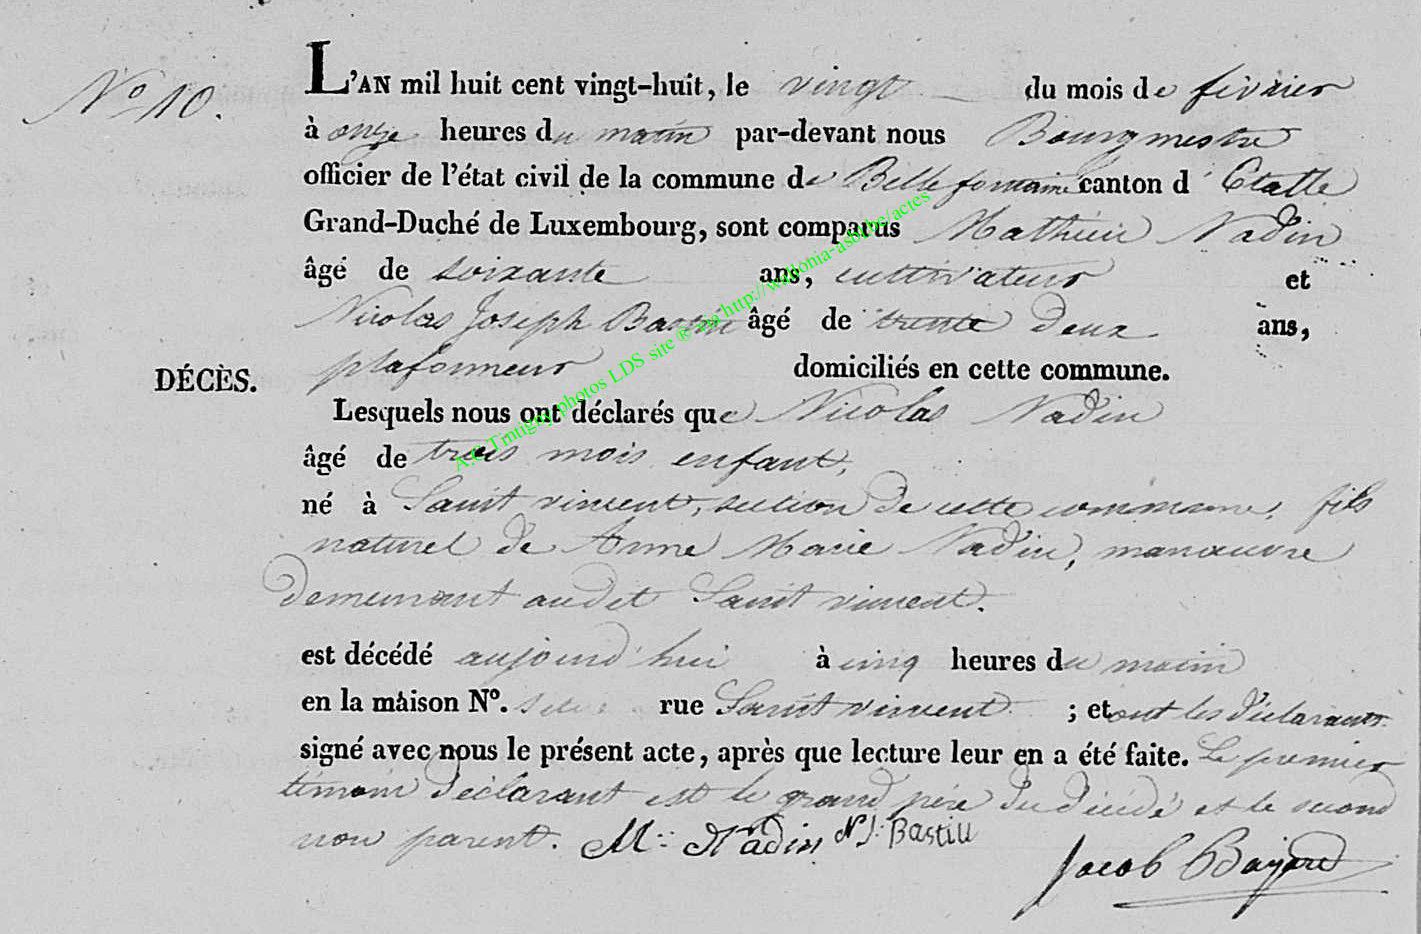 N° 10.
L'AN mil huit cent vingt-huit, le vingt du mois de février
à onze heures du matin par-devant nous Bourgmestre
officier de l'état civil de la commune de Bellefontaine canton d' Etalle
Grand-Duché de Luxembourg, sont comparus Mathieu Nadin
âgé de soixante ans, cultivateur et
Nicolas Joseph âgé de trente deux ans,
plafonneur domiciliés en cette commune.
DÉCÈS.
Lesquels nous ont déclarés que Nicolas Nadin
âgé de trois mois enfant,
né à Saint vincent, section de cette commune, fils
naturel de Anne Marie Nadin, manœuvre
demeurant audit Saint vincent.
est décédé aujourd'hui à cinq heures du matin
en la maison N°. rue Saint vincent ; et ont les déclarants
signé avec nous le présent acte, après que lecture leur en a été faite. Le premier
témoin déclarant est le grand père du décédé et le second
non parent. M: Nadin N J: Bastin
Jacob Bayard
A.C Tintigny photos LDS site ® via http://wallonia-asbl.be/actes